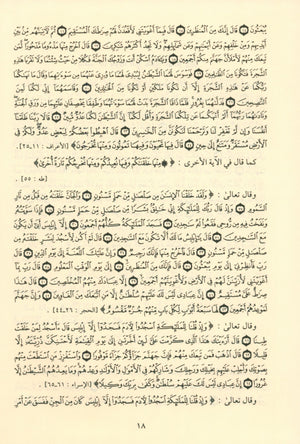 يُبْعَثُونَ قَالَ إِنَّكَ مِنَ الْمُنظَرِينَ قَالَ فَبِمَا أَغْوَيْتَنِي لَأَقْعُدَنَّ لَهُمْ صِرَاطَكَ الْمُسْتَقِيمَ ثُمَّ لَآتِيَنَّهُم مِّن بَيْنِ
أَيْدِيهِمْ وَمِنْ خَلْفِهِمْ وَعَنْ أَيْمَانِهِمْ وَعَن شَمَائِلِهِمْ وَلَا تَجِدُ أَكْثَرَهُمْ شَاكِرِينَ قَالَ اخْرُجْ مِنْهَا مَذْءُومًا مَّدْحُورًا لَّمَن
تَبِعَكَ مِنْهُمْ لَأَمْلَأَنَّ جَهَنَّمَ مِنكُمْ أَجْمَعِينَ وَيَا آدَمُ اسْكُنْ أَنتَ وَزَوْجُكَ الْجَنَّةَ فَكُلَا مِنْ حَيْثُ شِئْتُمَا وَلَا تَقْرَبَا هَٰذِهِ
الشَّجَرَةَ فَتَكُونَا مِنَ الظَّالِمِينَ فَوَسْوَسَ لَهُمَا الشَّيْطَانُ لِيُبْدِيَ لَهُمَا مَا وُورِيَ عَنْهُمَا مِن سَوْآتِهِمَا وَقَالَ مَا نَهَاكُمَا
رَبُّكُمَا عَنْ هَٰذِهِ الشَّجَرَةِ إِلَّا أَن تَكُونَا مَلَكَيْنِ أَوْ تَكُونَا مِنَ الْخَالِدِينَ وَقَاسَمَهُمَا إِنِّي لَكُمَا لَمِنَ
النَّاصِحِينَ فَدَلَّاهُمَا بِغُرُورٍ فَلَمَّا ذَاقَا الشَّجَرَةَ بَدَتْ لَهُمَا سَوْآتُهُمَا وَطَفِقَا يَخْصِفَانِ عَلَيْهِمَا مِن وَرَقِ الْجَنَّةِ
وَنَادَاهُمَا رَبُّهُمَا أَلَمْ أَنْهَكُمَا عَن تِلْكُمَا الشَّجَرَةِ وَأَقُل لَّكُمَا إِنَّ الشَّيْطَانَ لَكُمَا عَدُوٌّ مُّبِينٌ قَالَا رَبَّنَا ظَلَمْنَا
أَنفُسَنَا وَإِن لَّمْ تَغْفِرْ لَنَا وَتَرْحَمْنَا لَنَكُونَنَّ مِنَ الْخَاسِرِينَ قَالَ اهْبِطُوا بَعْضُكُمْ لِبَعْضٍ عَدُوٌّ وَلَكُمْ فِي
الْأَرْضِ مُسْتَقَرٌّ وَمَتَاعٌ إِلَىٰ حِينٍ قَالَ فِيهَا تَحْيَوْنَ وَفِيهَا تَمُوتُونَ وَمِنْهَا تُخْرَجُونَ﴾ [الأعراف : ١١-٢٥].
كما قال في الآية الأخرى : ﴿مِنْهَا خَلَقْنَاكُمْ وَفِيهَا نُعِيدُكُمْ وَمِنْهَا نُخْرِجُكُمْ تَارَةً أُخْرَىٰ﴾
[طه : ٥٥] .
وقال تعالى : ﴿وَلَقَدْ خَلَقْنَا الْإِنسَانَ مِن صَلْصَالٍ مِّنْ حَمَإٍ مَّسْنُونٍ وَالْجَانَّ خَلَقْنَاهُ مِن قَبْلُ مِن نَّارِ
السَّمُومِ وَإِذْ قَالَ رَبُّكَ لِلْمَلَائِكَةِ إِنِّي خَالِقٌ بَشَرًا مِّن صَلْصَالٍ مِّنْ حَمَإٍ مَّسْنُونٍ فَإِذَا سَوَّيْتُهُ
وَنَفَخْتُ فِيهِ مِن رُّوحِي فَقَعُوا لَهُ سَاجِدِينَ فَسَجَدَ الْمَلَائِكَةُ كُلُّهُمْ أَجْمَعُونَ إِلَّا إِبْلِيسَ أَبَىٰ أَن يَكُونَ
مَعَ السَّاجِدِينَ قَالَ يَا إِبْلِيسُ مَا لَكَ أَلَّا تَكُونَ مَعَ السَّاجِدِينَ قَالَ لَمْ أَكُن لِّأَسْجُدَ لِبَشَرٍ خَلَقْتَهُ مِن
صَلْصَالٍ مِّنْ حَمَإٍ مَّسْنُونٍ قَالَ فَاخْرُجْ مِنْهَا فَإِنَّكَ رَجِيمٌ وَإِنَّ عَلَيْكَ اللَّعْنَةَ إِلَىٰ يَوْمِ الدِّينِ قَالَ
رَبِّ فَأَنظِرْنِي إِلَىٰ يَوْمِ يُبْعَثُونَ قَالَ فَإِنَّكَ مِنَ الْمُنظَرِينَ إِلَىٰ يَوْمِ الْوَقْتِ الْمَعْلُومِ قَالَ رَبِّ بِمَا
أَغْوَيْتَنِي لَأُزَيِّنَنَّ لَهُمْ فِي الْأَرْضِ وَلَأُغْوِيَنَّهُمْ أَجْمَعِينَ إِلَّا عِبَادَكَ مِنْهُمُ الْمُخْلَصِينَ قَالَ هَٰذَا
صِرَاطٌ عَلَيَّ مُسْتَقِيمٌ إِنَّ عِبَادِي لَيْسَ لَكَ عَلَيْهِمْ سُلْطَانٌ إِلَّا مَنِ اتَّبَعَكَ مِنَ الْغَاوِينَ وَإِنَّ جَهَنَّمَ
لَمَوْعِدُهُمْ أَجْمَعِينَ لَهَا سَبْعَةُ أَبْوَابٍ لِّكُلِّ بَابٍ مِّنْهُمْ جُزْءٌ مَّقْسُومٌ﴾ [الحجر : ٢٦-٤٤].
وقال تعالى : ﴿وَإِذْ قُلْنَا لِلْمَلَائِكَةِ اسْجُدُوا لِآدَمَ فَسَجَدُوا إِلَّا إِبْلِيسَ قَالَ أَأَسْجُدُ لِمَنْ خَلَقْتَ
طِينًا قَالَ أَرَأَيْتَكَ هَٰذَا الَّذِي كَرَّمْتَ عَلَيَّ لَئِنْ أَخَّرْتَنِ إِلَىٰ يَوْمِ الْقِيَامَةِ لَأَحْتَنِكَنَّ ذُرِّيَّتَهُ إِلَّا
قَلِيلًا قَالَ اذْهَبْ فَمَن تَبِعَكَ مِنْهُمْ فَإِنَّ جَهَنَّمَ جَزَاؤُكُمْ جَزَاءً مَّوْفُورًا وَاسْتَفْزِزْ مَنِ اسْتَطَعْتَ مِنْهُم
بِصَوْتِكَ وَأَجْلِبْ عَلَيْهِم بِخَيْلِكَ وَرَجِلِكَ وَشَارِكْهُمْ فِي الْأَمْوَالِ وَالْأَوْلَادِ وَعِدْهُمْ وَمَا يَعِدُهُمُ الشَّيْطَانُ إِلَّا
غُرُورًا إِنَّ عِبَادِي لَيْسَ لَكَ عَلَيْهِمْ سُلْطَانٌ وَكَفَىٰ بِرَبِّكَ وَكِيلًا﴾ [الإسراء : ٦١-٦٥] .
وقال تعالى : ﴿وَإِذْ قُلْنَا لِلْمَلَائِكَةِ اسْجُدُوا لِآدَمَ فَسَجَدُوا إِلَّا إِبْلِيسَ كَانَ مِنَ الْجِنِّ فَفَسَقَ عَنْ أَمْرِ
١٨